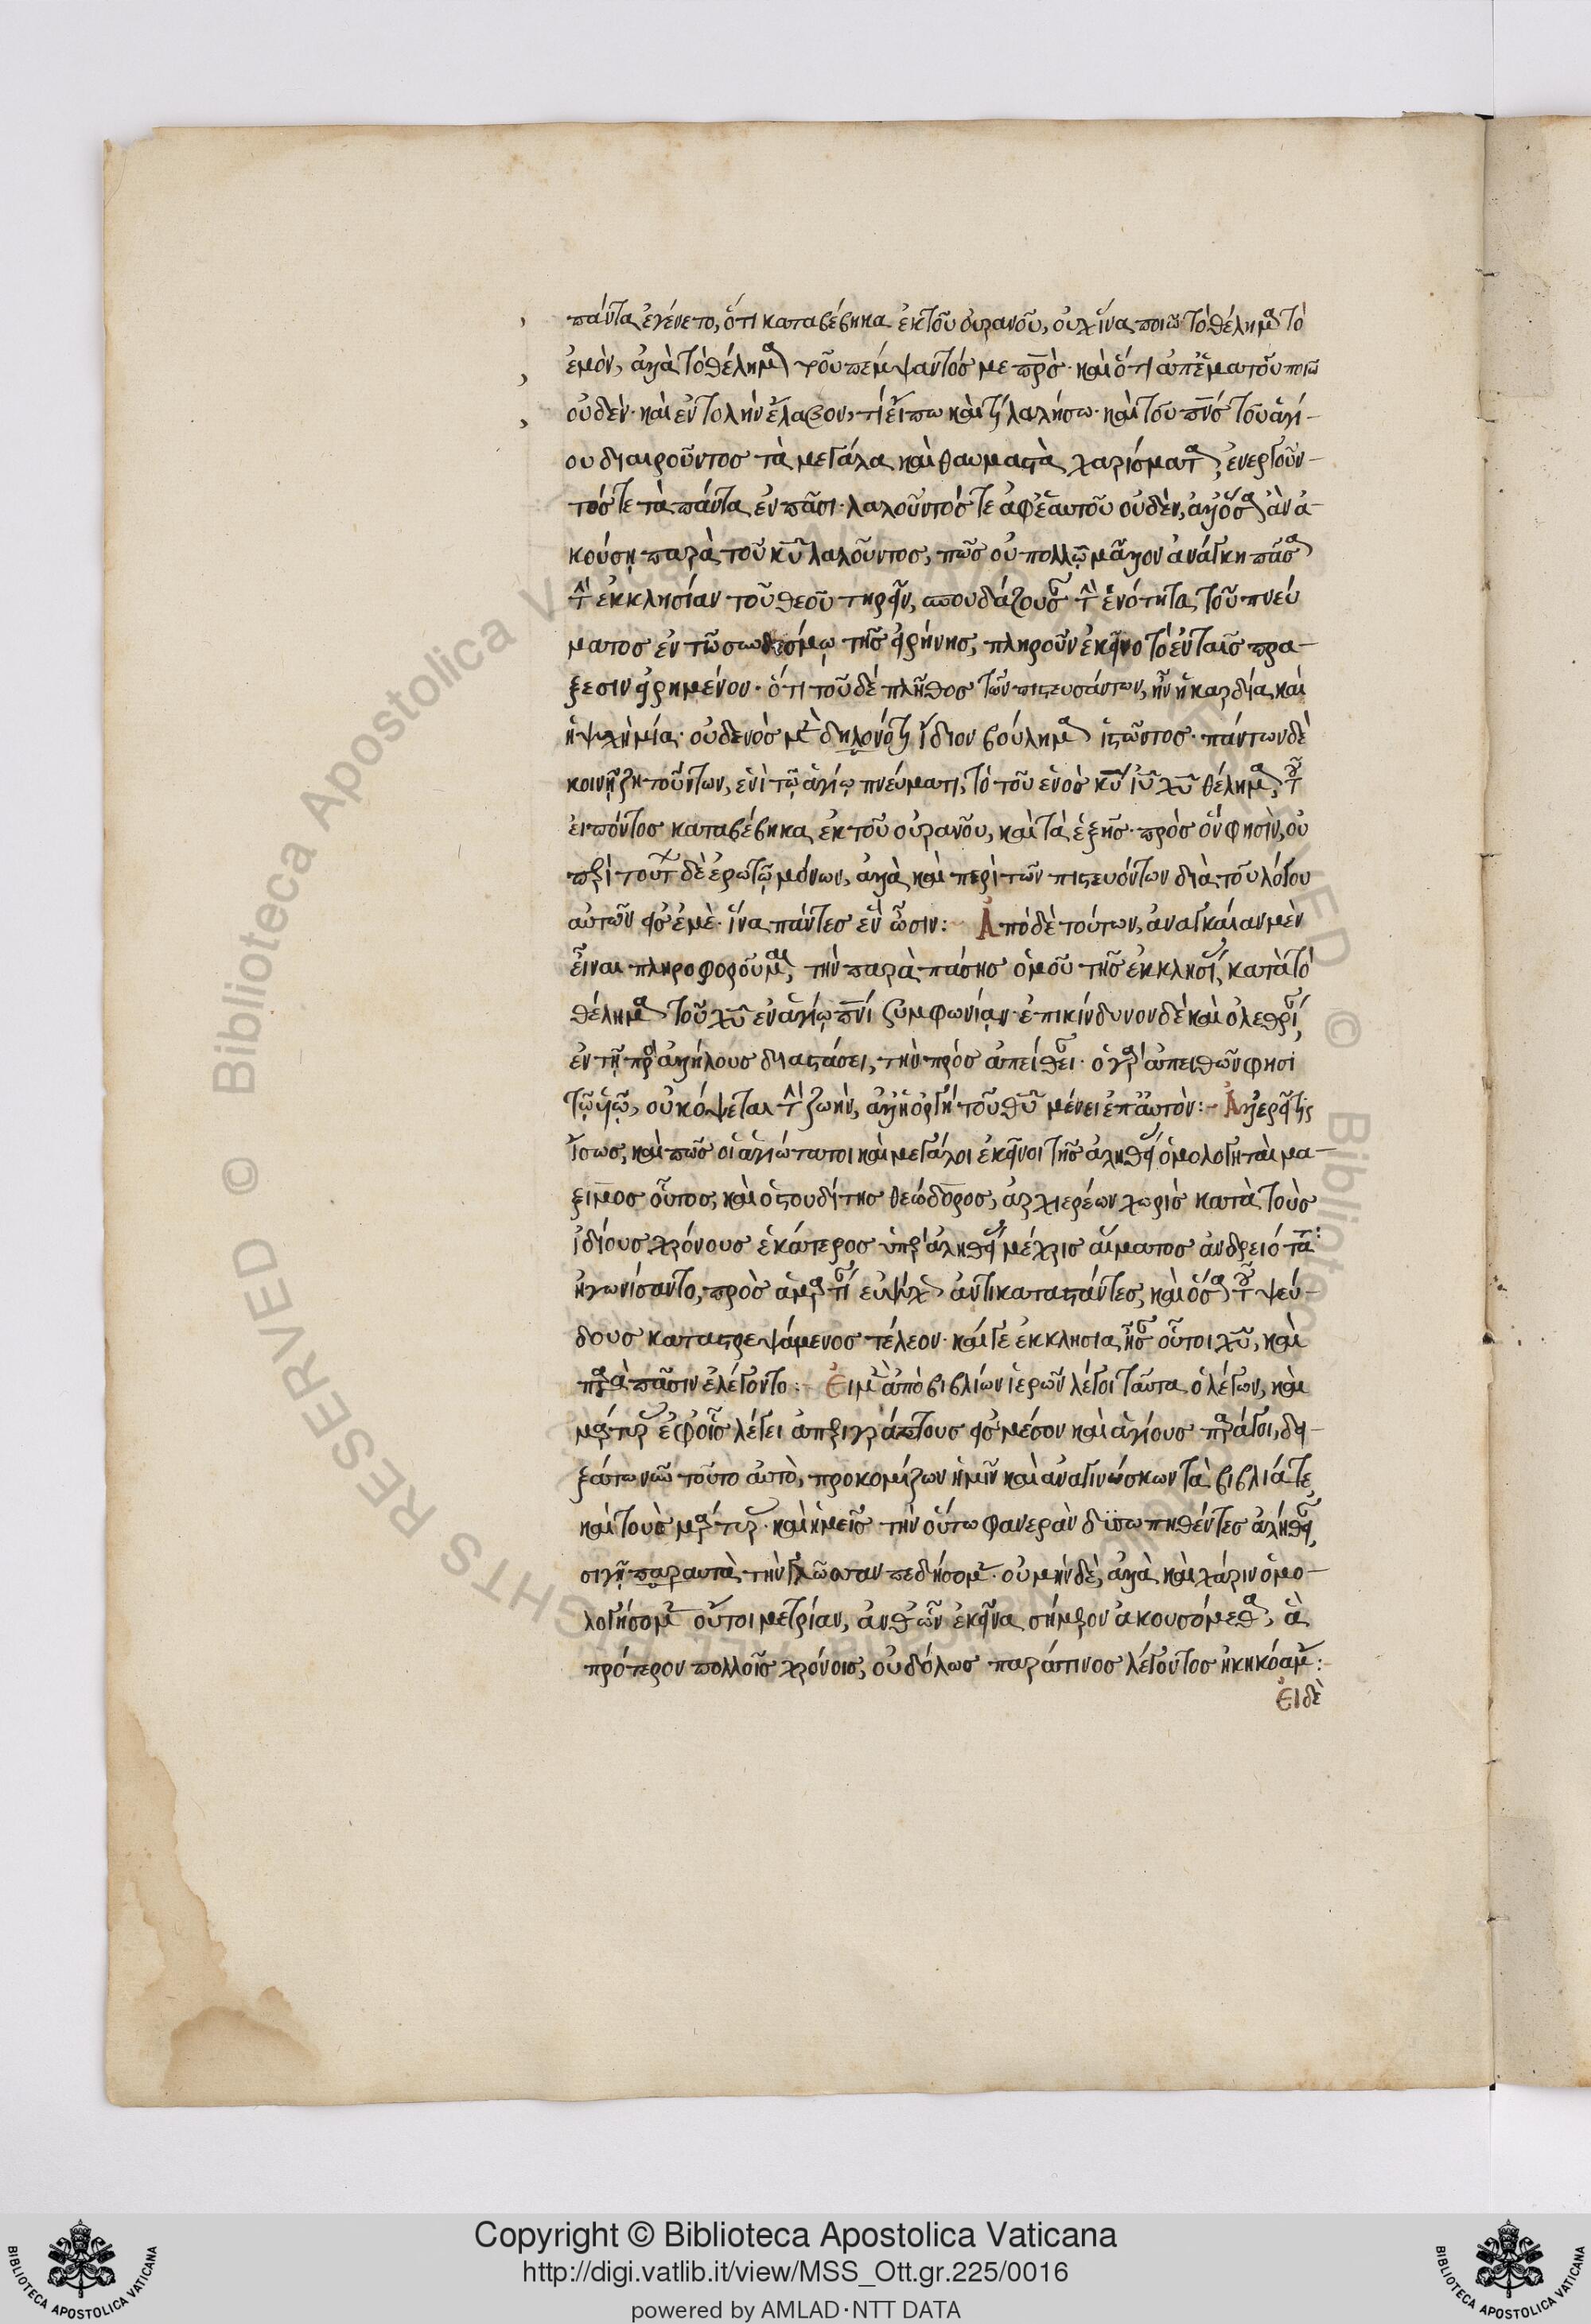 πάντα ἐγένετο, ὅτι καταβέβηκα ἐκ τοῦ οὐρανοῦ, οὐχ ἵνα ποιῶ τὸ θέλημα τὸ
ἐμὸν, ἀλλὰ τὸ θέλημα τοῦ πέμψαντός με πρσ· καὶ ὅτι ἀπ ἐματοῦ ποιῶ
οὐδὲν· καὶ ἐντολὴν ἔλαβον, τί εἴπω καὶ τί λαλήσω· καὶ τοῦ πνσ τοῦ ἁγί-
ου διαιροῦντος τὰ μεγάλα καὶ θαυμαστὰ χαρίσματα, ἐνεργοῦν-
τός τε τὰ πάντα ἐν πᾶσι· λαλοῦντός τε ἀφ ἑαυτοῦ οὐδὲν, ἀλλ ὅσα ἂν ἀ-
κούσῃ παρὰ τοῦ κυ λαλοῦντος, πῶς οὐ πολλῷ μᾶλλον ἀνάγκη πᾶσα
τὴν ἐκκλησίαν τοῦ θεοῦ τηρεῖν, σπουδάζουσαν τὴν ἑνότητα τοῦ πνεύ
ματος ἐν τῶ συνδέσμῳ τῆς εἰρήνης, πληροῦν ἐκεῖνο τὸ ἐν ταῖς πρα-
ξεσιν εἰρημένον· ὅτι τοῦ δὲ πλῆθος τῶν πιστευσάντων, ἦν ἡ καρδία, καὶ
ἡ ψυχὴ μία· οὐδενὸς μὲν δηλονότι ἴδιον βούλημα ἱστῶντος· πάντων δὲ
κοινῇ ζητούντων, ἑνὶ τῷ ἁγίῳ πνεύματι, τὸ τοῦ ἑνὸς κυ ιυ χυ θέλημα, τοῦ
εἰπόντος καταβέβηκα ἐκ τοῦ οὐρανοῦ, καὶ τὰ ἑξῆς· πρὸς ὅν φησὶν, οὐ
περὶ τούτων δὲ ἐρωτῶ μόνων, ἀλλὰ καὶ περὶ τῶν πιστευόντων διὰ τοῦ λόγου
αὐτῶν εἰς ἐμὲ· ἵνα πάντες ἓν ὦσιν: Ἀπὸ δὲ τούτων, ἀναγκαίαν μὲν
εἶναι πληροφορούμαι, τὴν παρὰ πάσης ὁμοῦ τῆς ἐκκλησίας, κατὰ τὸ
θέλημα τοῦ χυ ἐν ἁγίῳ πνι συμφωνίαν· ἐπικίνδυνον δὲ καὶ ὀλεθρίαν,
ἐν τῇ πρὸς ἀλλήλους διαστάσει, τὴν πρὸς ἀπείθειαν· ὁ γὰρ ἀπειθῶν φησὶ
τῷ υἱῷ, οὐκ όψεται τὴν ζωὴν, ἀλλ ἡ ὀργὴ τοῦ θυ μένει ἐπ αὐτὸν:- Ἀλλ ἐρεῖ τις
ἴσως, καὶ πῶς οἱ ἁγιώτατοι καὶ μεγάλοι ἐκεῖνοι τῆς ἀληθείας ὁμολογηταὶ μα-
ξιμος οὗτος, καὶ ὁ στουδίτης θεόδωρος, ἀρχιερέων χωρὶς κατὰ τοὺς
ἰδίους χρόνους ἑκάτερος ὑπὲρ ἀληθείας μέχρις αἵματος ἀνδρειότατα
ἠγωνίσαντο, πρὸς ἁμαρτίαν εὐψύχως ἀντικαταστάντες, καὶ ὅσα τοῦ ψεύ-
δους καταστρεψάμενος τέλεον· καίγε ἐκκλησία ἦσαν οὗτοι χυ, καὶ
παρὰ πᾶσιν ἐλέγοντο: Εἰ μὲν ἀπὸ βιβλίων ἱερῶν λέγοι ταῦτα ὁ λέγων, καὶ
μάρτυρας ἐφ οἷς λέγει ἀπεριγράπτους εἰς μέσον καὶ ἁγίους παράγοι, δει-
ξάτω νῶν τοῦτο αὐτὸ, προκομίζων ἡμῖν καὶ ἀναγινώσκων τὰ βιβλιά τε
καὶ τοὺς μάρτυρας· καὶ ἡμεῖς τὴν οὕτω φανερὰν δυσωπηθέντες ἀλήθειαν,
σιγῇ παραυτὰ τὴν γλῶτταν πεδήσομεν· οὐ μὴν δὲ, ἀλλὰ καὶ χάριν ὁμο-
λογήσομεν οὔτοι μετρίαν, ἀνθ ὧν ἐκεῖνα σήμερον ἀκουσόμεθα, ἃ
πρότερον πολλοῖς χρόνοις, οὐδόλως παρά τινος λέγοντος ἠκηκόαμεν:
Εἰ δὲ
Copyright © Biblioteca Apostolica Vaticana
http://digi.vatlib.it/view/MSS_Ott.gr.225/0016
powered by AMLAD·NTT DATA